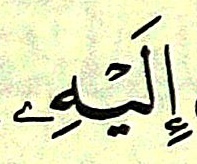 إِلَيْهِۦ